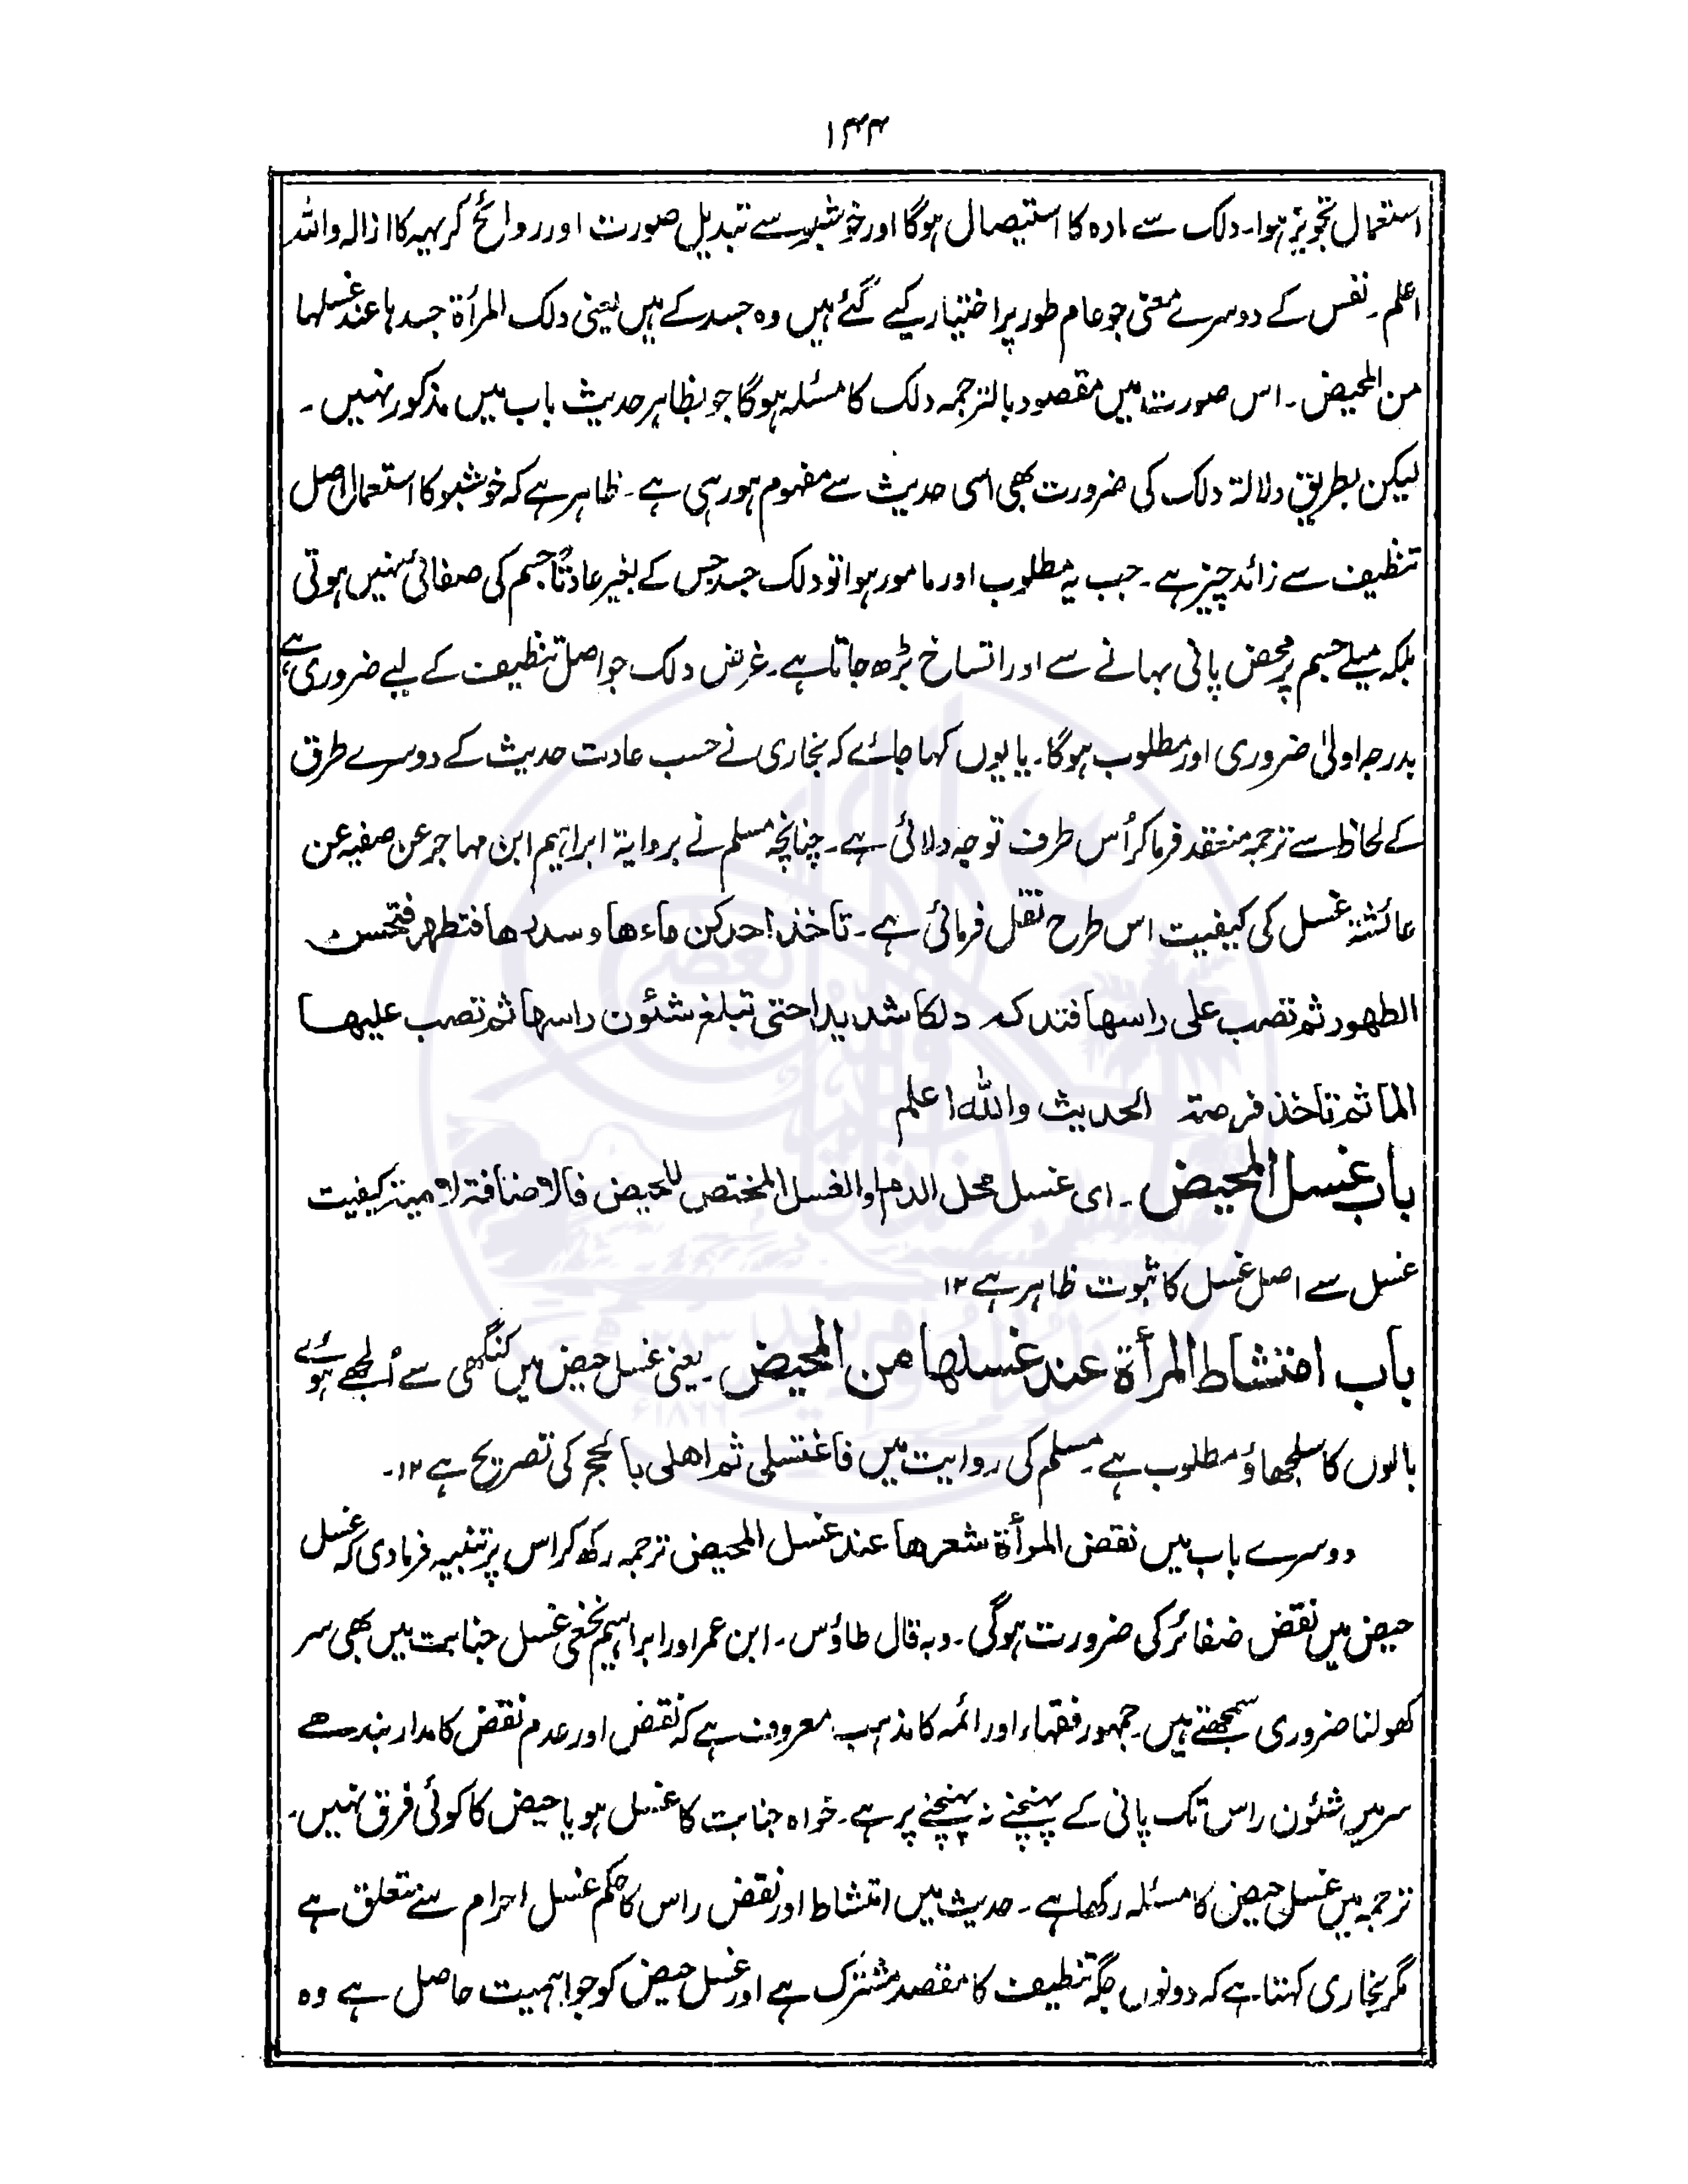 ۱۴۴
استعمال تجویز ہوا۔ دلک سے مادہ کا استیصال ہوگا اور خوشبو سے تبدیل صورت اور روائح کریہہ کا ازالہ واللہ
اعلم۔ نفس کے دوسرے معنی جو عام طور پر اختیار کیے گئے ہیں وہ جسد کے ہیں یعنی دلک المرأۃ جسدہا عند غسلہا
من المحیض۔ اس صورت میں مقصود بالترجمہ دلک کا مسئلہ ہوگا جو بظاہر حدیث باب میں مذکور نہیں۔
لیکن بطریق دلالۃ دلک کی ضرورت بھی اسی حدیث سے مفہوم ہو رہی ہے۔ ظاہر ہے کہ خوشبو کا استعمال اصل
تنظیف سے زائد چیز ہے۔ جب یہ مطلوب اور مامور ہوا تو دلک جسد جس کے بغیر عادتًا جسم کی صفائی نہیں ہوتی
بلکہ میلے جسم پر محض پانی بہانے سے اور اتساخ بڑھ جاتا ہے۔ غرض دلک جو اصل تنظیف کے لیے ضروری ہے،
بدرجہ اولیٰ ضروری اور مطلوب ہوگا۔ یا یوں کہا جائے کہ بخاری نے حسب عادت حدیث کے دوسرے طرق
کے لحاظ سے ترجمہ منعقد فرما کر اُس طرف توجہ دلائی ہے۔ چنانچہ مسلم نے بروایۃ ابراہیم ابن مہاجر عن صفیہ عن
عائشۃ غسل کی کیفیت اس طرح نقل فرمائی ہے۔ تاخذ احدکن ماءھا وسدرھا فتطھر فتحسن
الطھور ثم تصب علی راسھا فتدلکہ دلکا شدیدا حتی تبلغ شئون راسھا ثم تصب علیھا
الما ثم تاخذ فرصۃ الحدیث واللہ اعلم
باب غسل المحیض۔ ای غسل محل الدم او الغسل المختص للحیض فالاضافۃ لامیۃ کیفیت
غسل سے اصل غسل کا ثبوت ظاہر ہے ۱۲
باب امتشاط المرأۃ عند غسلھا من المحیض۔ یعنی غسل حیض میں کنگھی سے اُلجھے ہوئے
بالوں کا سلجھاؤ مطلوب ہے۔ مسلم کی روایت میں فاغتسلی ثم اھلی بالحج کی تصریح ہے ۱۲۔
دوسرے باب میں نقض المرأۃ شعرھا عند غسل المحیض ترجمہ رکھ کر اس پر تنبیہ فرمادی کہ غسل
حیض میں نقض ضفائر کی ضرورت ہوگی۔ وبہ قال طاؤس۔ ابن عمر اور ابراہیم نخعی غسل جنابت میں بھی سر
کھولنا ضروری سمجھتے ہیں۔ جمہور فقہاء اور ائمہ کا مذہب معروف ہے کہ نقض اور عدم نقض کا مدار بندھے
سر میں شئون راس تک پانی کے پہنچنے نہ پہنچنے پر ہے۔ خواہ جنابت کا غسل ہو یا حیض کا کوئی فرق نہیں۔
ترجمہ میں غسل حیض کا مسئلہ رکھا ہے۔ حدیث میں امتشاط اور نقض راس کا حکم غسل احرام سے متعلق ہے
مگر بخاری کہتا ہے کہ دونوں جگہ تنظیف کا مقصد مشترک ہے اور غسل حیض کو جو اہمیت حاصل ہے وہ